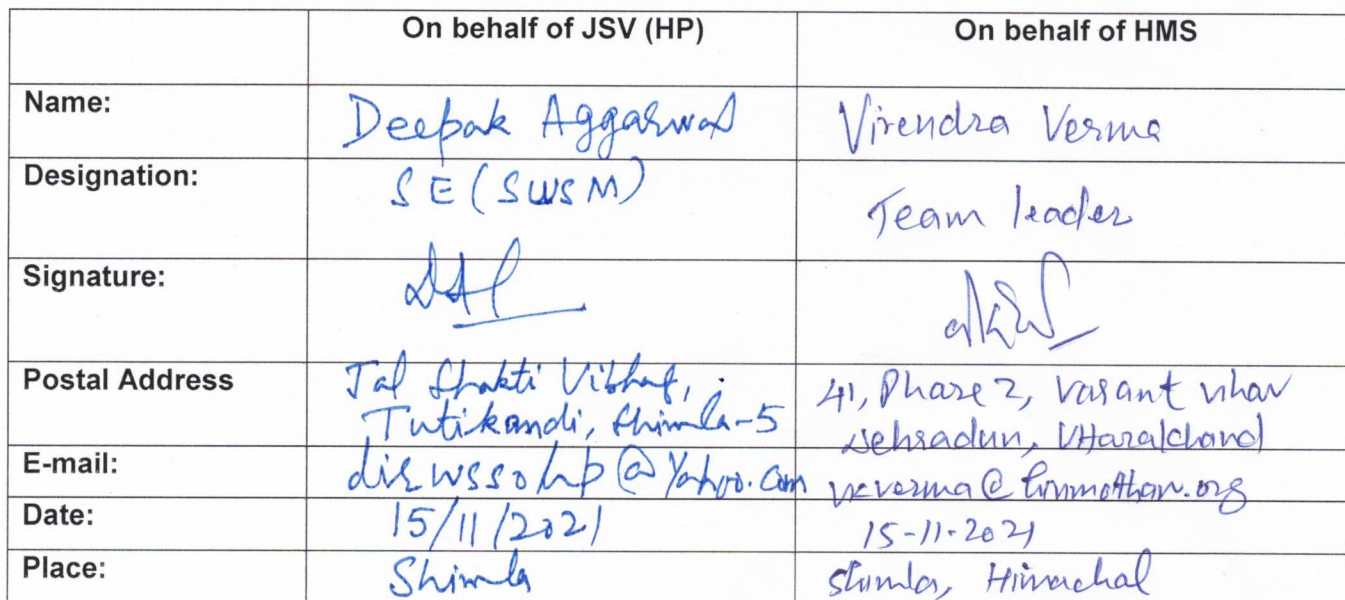 On behalf of JSV (HP) On behalf of HMS
Name: Deepak Aggarwal Virendra Verma
Designation: SE (SWSM) Team leader
Signature:
Postal Address Jal Shakti Vibhag, 41, Phase 2, Vasant vihar
Tutikandi, Shimla-5 Dehradun, Uttarakhand
E-mail: dirwssohp@yahoo.com vkverma@himmotthan.org
Date: 15/11/2021 15-11-2021
Place: Shimla Shimla, Himachal